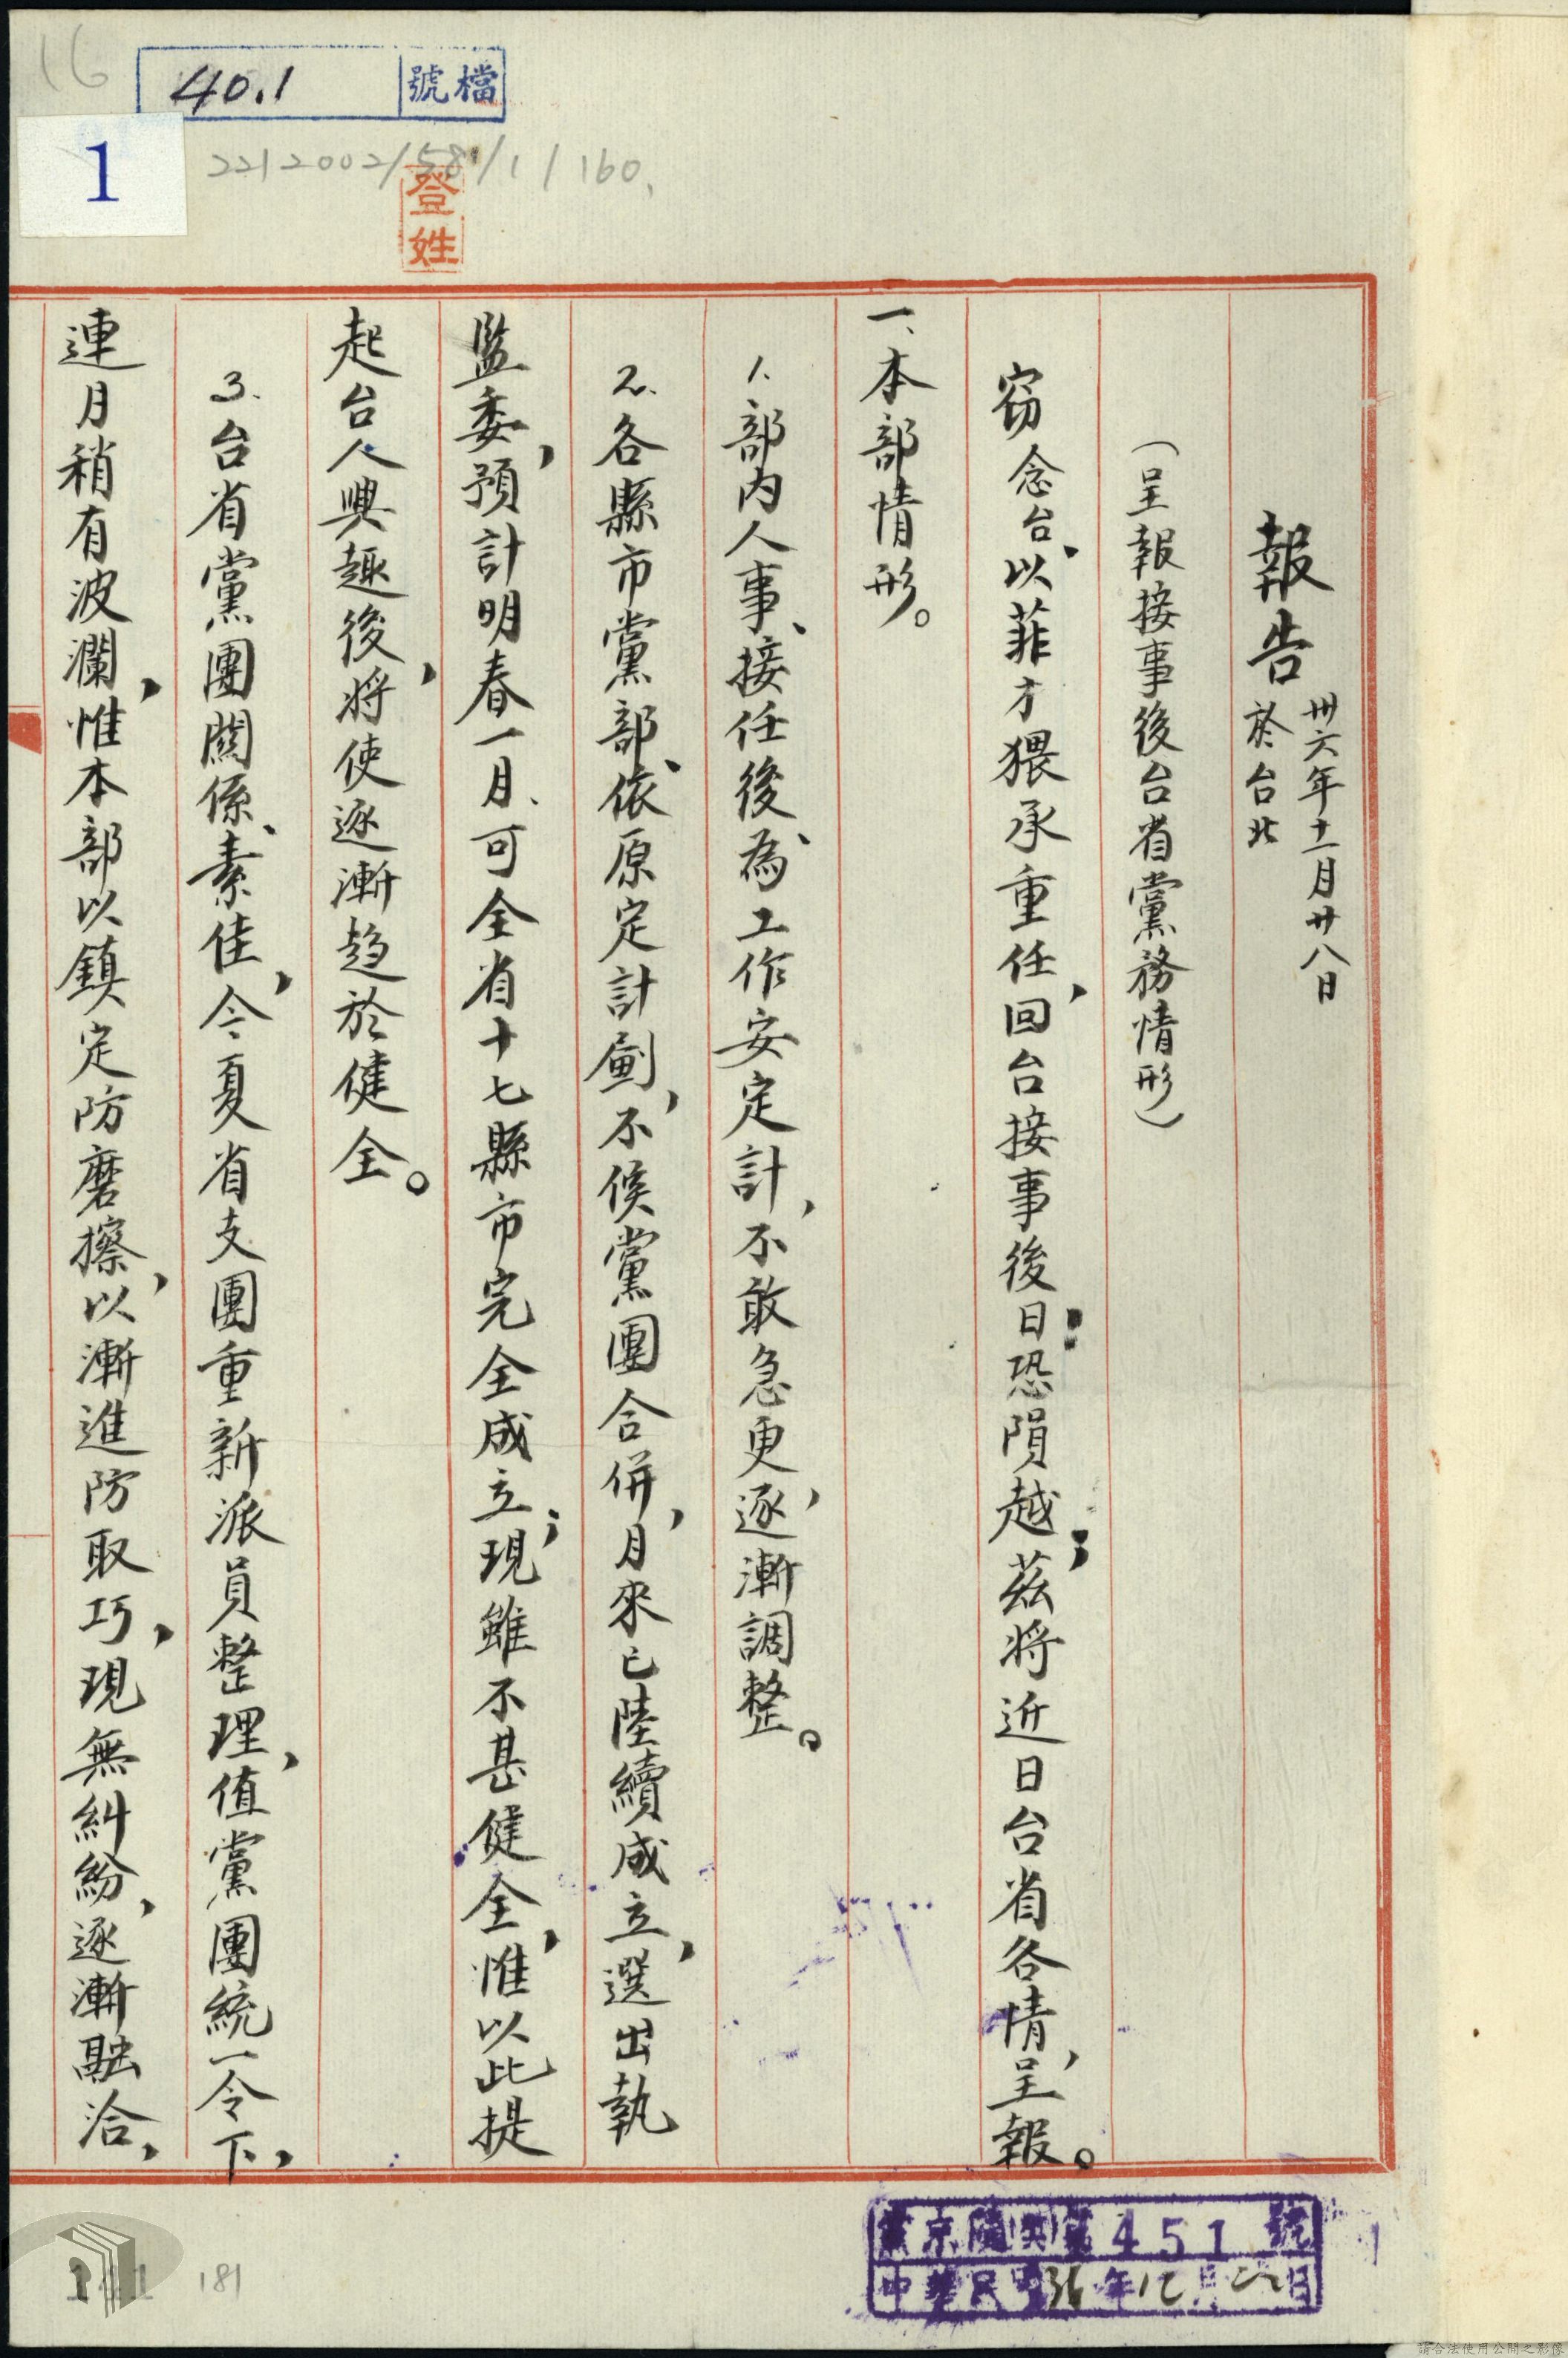 16
檔號
40.1
1
2212002/58/1/160.
登姓
報告 卅六年十一月廿八日
於台北
(呈報接事後台省黨務情形)
窃念台、以菲才猥承重任,回台接事後日恐隕越;茲將近日台省各情,呈報。
一、本部情形。
1.部內人事、接任後、為工作安定計,不敢急更,逐漸調整。
2.各縣市黨部、依原定計劃,不俟黨團合併,月來已陸續成立,選出執
監委,預計明春一月、可全省十七縣市完全成立;現雖不甚健全,惟以此提
起台人興趣後,將使逐漸趋於健全。
3.台省黨團關係、素佳,今夏省支團重新派員整理,值黨團統一令下,
連月稍有波瀾,惟本部以鎮定防磨擦,以漸進防取巧,現無糾紛,逐漸融洽,
451號
中華民國36年12月 日
181
請合法使用公開之影像